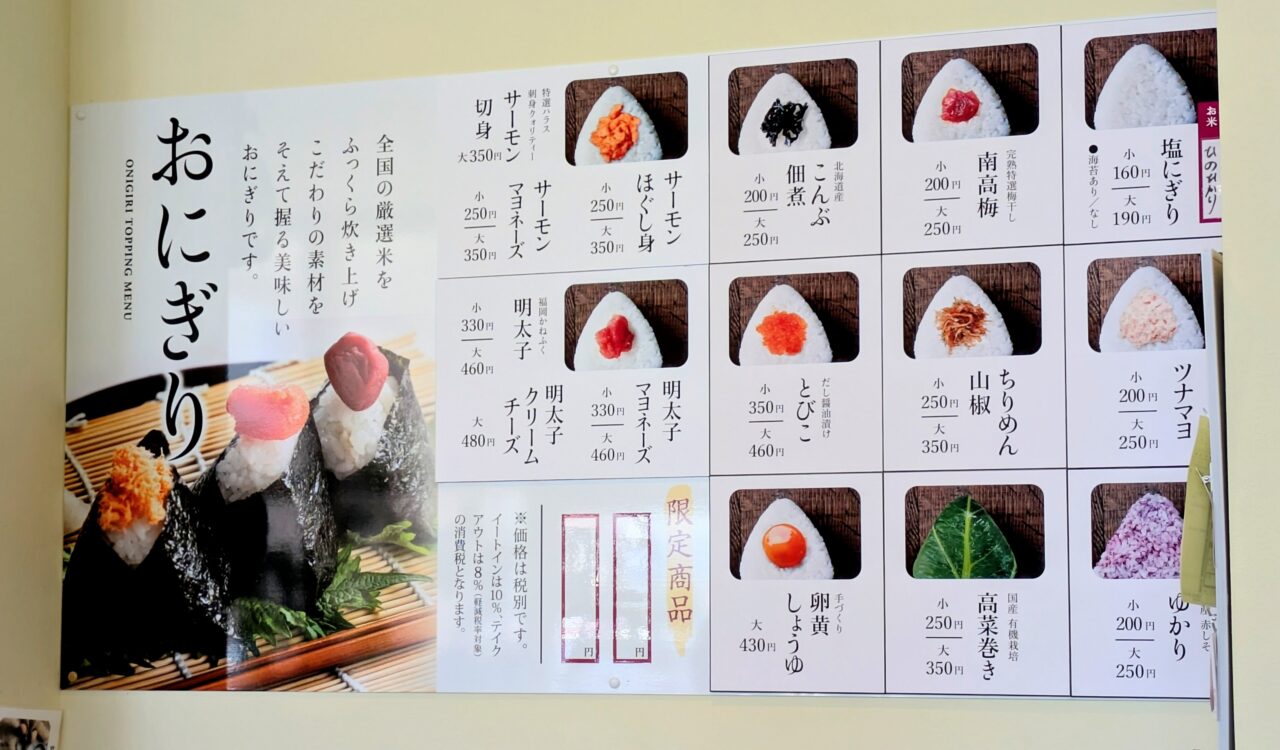 おにぎり
ONIGIRI TOPPING MENU
全国の厳選米を
ふっくら炊き上げ
こだわりの素材を
そえて握る美味しい
おにぎりです。
お米
ひのひかり
塩にぎり
小
160円
大
190円
●海苔あり/なし
完熟特選梅干し
南高梅
小
200円
大
250円
北海道産
こんぶ
佃煮
小
200円
大
250円
サーモン
ほぐし身
小
250円
大
350円
特選ハラス
刺身クォリティー
サーモン
切身
大350円
サーモン
マヨネーズ
小
250円
大
350円
ツナマヨ
小
200円
大
250円
ちりめん
山椒
小
250円
大
350円
だし醤油漬け
とびこ
小
350円
大
460円
福岡かねふく
明太子
小
330円
大
460円
明太子
マヨネーズ
小
330円
大
460円
明太子
クリーム
チーズ
大
480円
赤しそ
ゆかり
小
200円
大
250円
国産 有機栽培
高菜巻き
小
250円
大
350円
手づくり
卵黄
しょうゆ
大
430円
限定商品
円
円
※価格は税別です。
イートインは10%、テイク
アウトは8%(軽減税率対象)
の消費税となります。